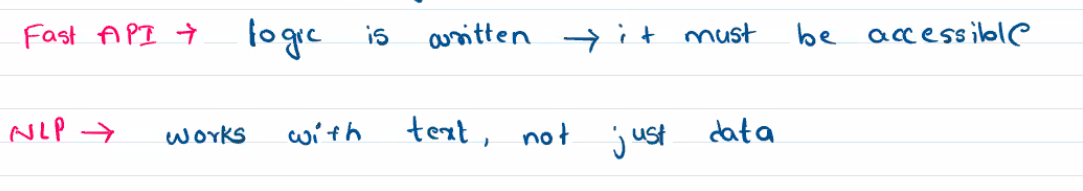 Fast API → logic is written → it must be accessible
NLP → works with text, not just data